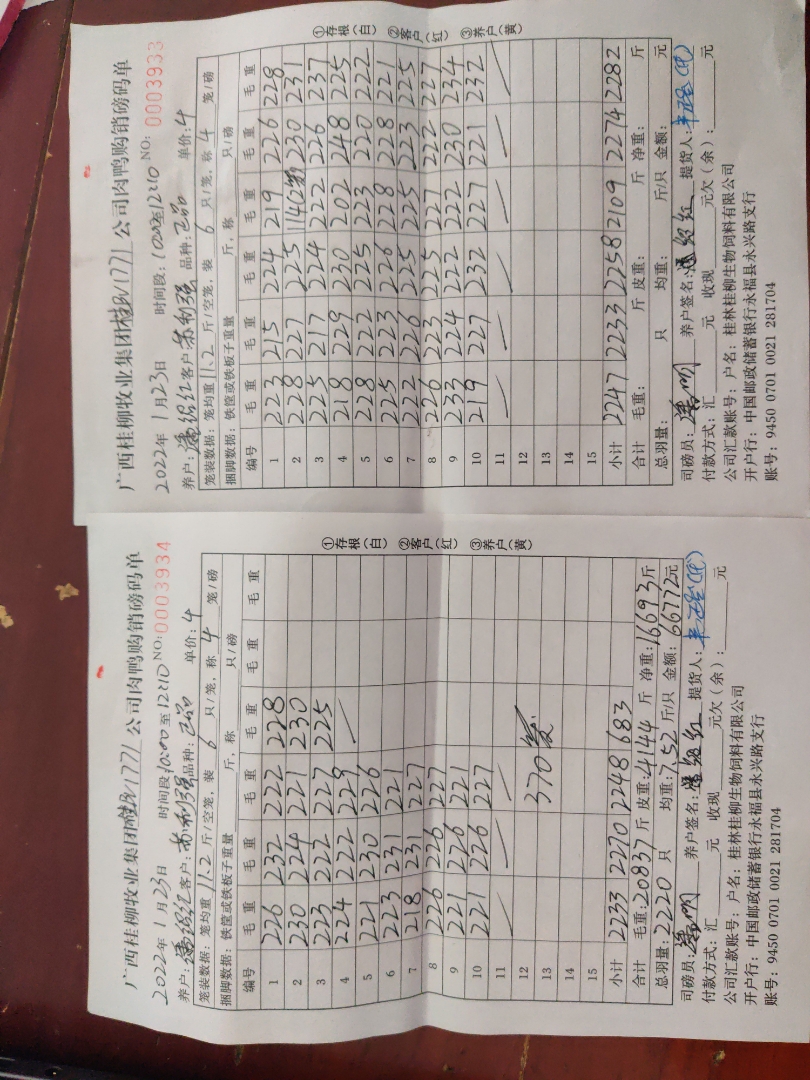 广西桂柳牧业集团桂BV1771公司肉鸭购销磅码单
2022年1月23日 时间段:10:00至12:10 NO:0003933
养户: 客户:苏利强 品种:正品 单价:4
笼装数据:笼均重11.2斤/空笼,装6只/笼,称4笼/磅
捆脚数据:铁筐或铁板子重量 斤,称 只/磅
编号 毛重 毛重 毛重 毛重 毛重 毛重
1 223 215 224 219 226 228
2 228 227 225 230 231
3 225 217 224 222 226 237
4 218 229 230 202 248 225
5 228 222 225 223 220 222
6 225 223 226 228 228 221
7 222 226 225 225 223 225
8 226 223 225 227 222 227
9 233 224 222 222 230 234
10 219 227 232 227 221 232
11
12
13
14
15
小计 2247 2233 2258 2109 2274 2282
合计 毛重: 斤 皮重: 斤 净重: 斤
总羽量: 只 均重: 斤/只 金额: 元
司磅员: 养户签名: 提货人:
付款方式:汇 元 收现 元欠(余): 元
公司汇款账号:户名:桂林桂柳生物饲料有限公司
开户行:中国邮政储蓄银行永福县永兴路支行
账号:9450 0701 0021 281704
①存根(白) ②客户(红) ③养户(黄)
广西桂柳牧业集团桂BV1771公司肉鸭购销磅码单
2022年1月23日 时间段10:00至12:10 NO:0003934
养户: 客户:苏利强 品种:正品 单价:4
笼装数据:笼均重11.2斤/空笼,装6只/笼,称4笼/磅
捆脚数据:铁筐或铁板子重量 斤,称 只/磅
编号 毛重 毛重 毛重 毛重 毛重 毛重
1 226 232 222 228
2 230 224 221 230
3 223 222 227 225
4 224 222 229
5 221 230 226
6 223 231 221
7 218 231 227
8 226 226 227
9 221 226 221
10 221 226 227
11
12
13 370笼
14
15
小计 2233 2270 2248 683
合计 毛重:20837斤 皮重:4144斤 净重:16693斤
总羽量:2220只 均重:7.52斤/只 金额:66772元
司磅员: 养户签名: 提货人:
付款方式:汇 元 收现 元欠(余): 元
公司汇款账号:户名:桂林桂柳生物饲料有限公司
开户行:中国邮政储蓄银行永福县永兴路支行
账号:9450 0701 0021 281704
①存根(白) ②客户(红) ③养户(黄)